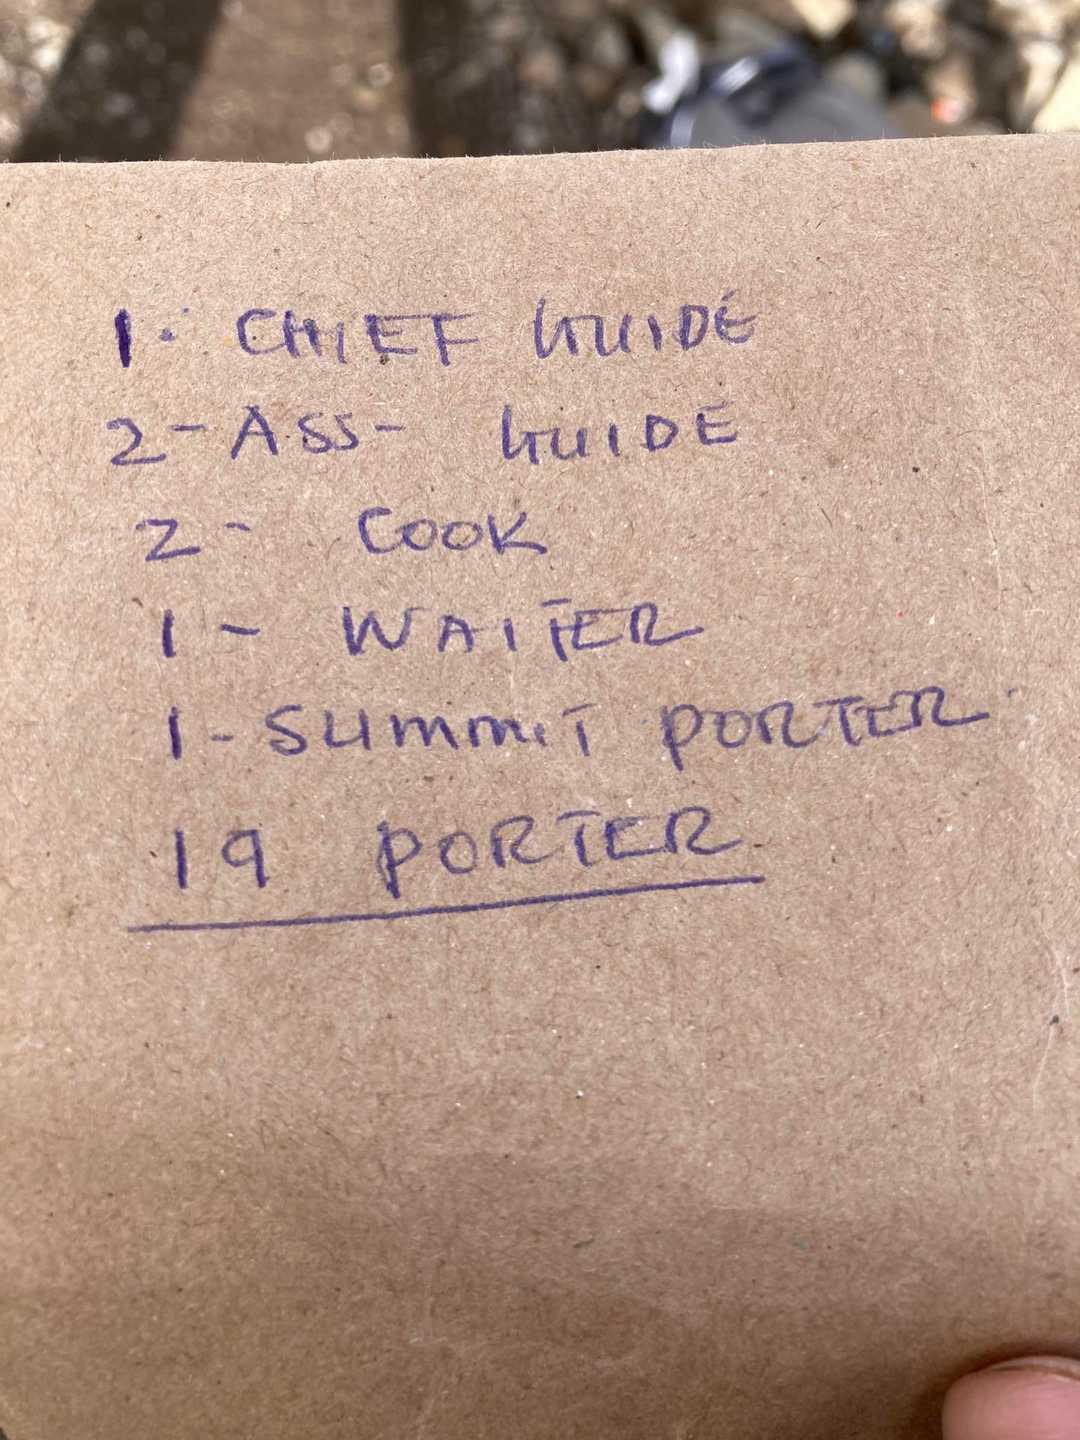 1. CHIEF GUIDE
2- ASS- GUIDE
2- COOK
1- WAITER
1- SUMMIT PORTER
19 PORTER